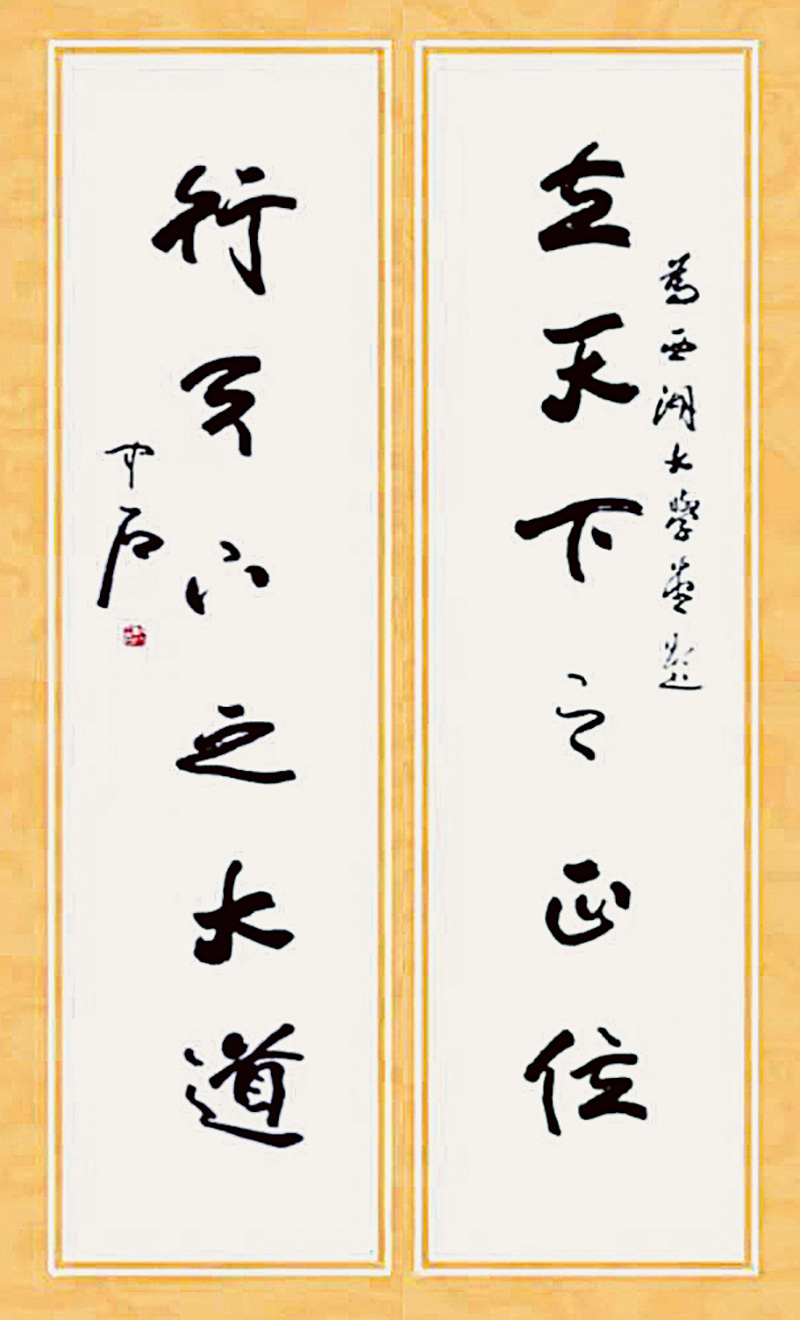 為西湖大學堂題
立天下之正位
行天下之大道
中石